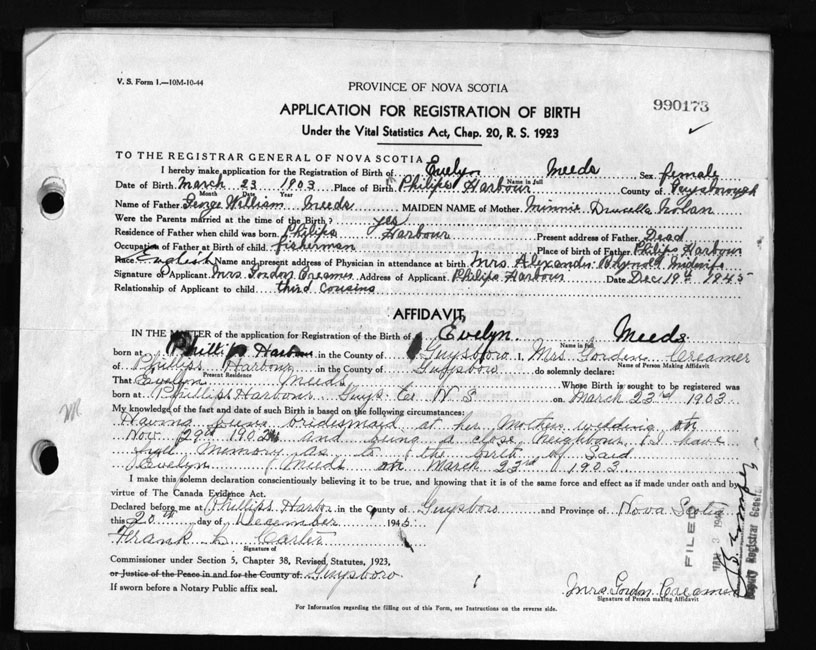 V. S. Form 1.—10M-10-44
PROVINCE OF NOVA SCOTIA
990173
APPLICATION FOR REGISTRATION OF BIRTH
Under the Vital Statistics Act, Chap. 20, R. S. 1923
TO THE REGISTRAR GENERAL OF NOVA SCOTIA
I hereby make application for the Registration of Birth of Evelyn Meeds Sex female
Name in Full
Date of Birth March 23 1903 Place of Birth Philips Harbour County of Guysborough
Month Date Year
Name of Father George William Meeds MAIDEN NAME of Mother Minnie Drucella Nolan
Were the Parents married at the time of the Birth? yes
Residence of Father when child was born Philips Harbour Present address of Father Dead
Occupation of Father at Birth of child fisherman Place of birth of Father Philips Harbour
Race English Name and present address of Physician in attendance at birth Mrs Alexander Midwife
Signature of Applicant Mrs Gordon Creamer Address of Applicant Philips Harbour Date Dec 19th 1945
Relationship of Applicant to child third cousins
AFFIDAVIT
IN THE MATTER of the application for Registration of the Birth of Evelyn Meeds
Name in Full
born at Phillips Harbour in the County of Guysboro I, Mrs Gordon Creamer
Name of Person Making Affidavit
of Phillips Harbour in the County of Guysboro do solemnly declare:
Present Residence
That Evelyn Meeds Whose Birth is sought to be registered was
born at Phillips Harbour Guys. Co N S on March 23rd 1903
My knowledge of the fact and date of such Birth is based on the following circumstances:
Having being bridesmaid at her Mothers wedding on
Nov 29th 1902 and being a close neighbour, I have
full Memory as to the birth of Said
Evelyn Meeds on March 23rd 1903
I make this solemn declaration conscientiously believing it to be true, and knowing that it is of the same force and effect as if made under oath and by
virtue of The Canada Evidence Act.
Declared before me at Phillips Harbor in the County of Guysboro and Province of Nova Scotia
this 20th day of December 1945
Frank L Carter
Signature of
Commissioner under Section 5, Chapter 38, Revised Statutes, 1923,
or Justice of the Peace in and for the County of Guysboro
If sworn before a Notary Public affix seal.
Mrs Gordon Creamer
Signature of Person making Affidavit
For Information regarding the filling out of this Form, see Instructions on the reverse side.
FILED
Deputy Registrar General